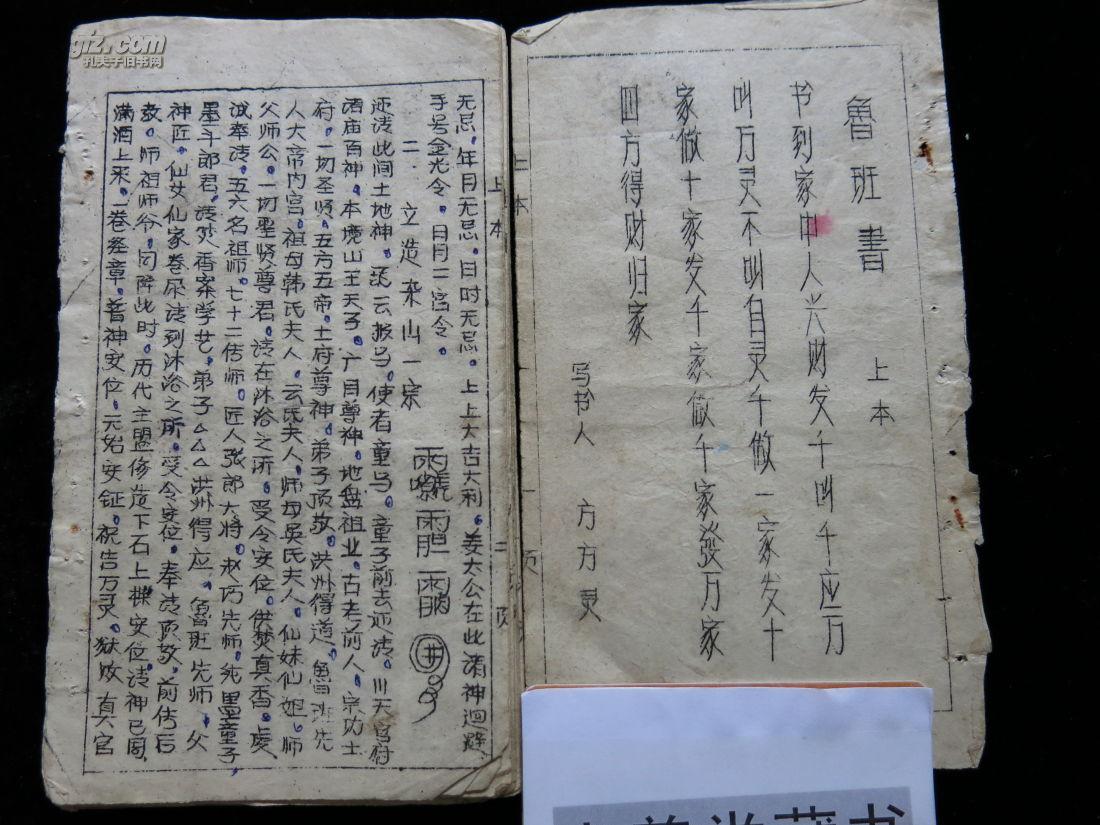 魯班書
上本
书到家中人兴财发千叫千应万
叫万灵不叫自灵千做一家发十
家做十家发千家做千家發万家
四方得财归家
写书人 方方灵
上本
一页
上本
二页
无忌。年月无忌。日时无忌。上上大吉大利。姜太公在此诸神迴避。
手号金光令。日月二宫令。
二、立造杂山一宗
还请此间土地神。云报马。使者童马。童子前去迎请。川天宫府
诸庙百神。本境山王天子。广目尊神。地盘祖业。古老前人。宗功土
府。一切圣贤。五方五帝。土府尊神。弟子顶敬。洪州得道。魯班先
人大帝内宫。祖母韩氏夫人。云氏夫人。师母吴氏夫人。仙妹仙姐。师
父师公。一切聖贤尊君。请在沐浴之所。受令安位。焚真香。虔
诚奉请。五六名祖师。七十二传师。匠人张郎大将。赵巧先师。纯墨童子,
墨斗郎君。请赴香案学艺。弟子△△△洪州得应。魯班先师。父
神匠。仙女仙家卷尿请到沐浴之所。受令安位。奉请顶敬。前传后
教。师祖师爷。同降此时。历代主盟修造下石上樑安位。请神已周,
满酒上来。一卷经章。普神安位。元始安钲。祝告万灵。狱敗真官
孔夫子旧书网